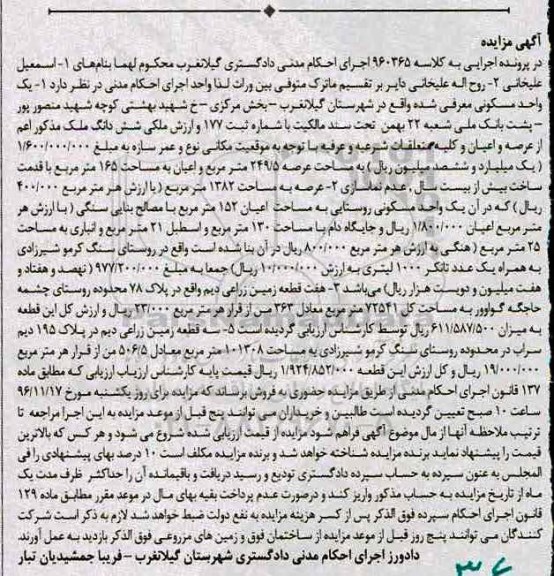 آگهی مزایده
در پرونده اجرایی به کلاسه ۹۶۰۳۶۵ اجرای احکام مدنی دادگستری گیلانغرب محکوم لهما بنام‌های ۱- اسمعیل
علیخانی ۲- روح اله علیخانی دایر بر تقسیم ماترک متوفی بین وراث لذا واحد اجرای احکام مدنی در نظر دارد ۱- یک
واحد مسکونی معرفی شده واقع در شهرستان گیلانغرب – بخش مرکزی – خ شهید بهشتی کوچه شهید منصور پور
– پشت بانک ملی شعبه ۲۲ بهمن تحت سند مالکیت با شماره ثبت ۱۷۷ و ارزش ملکی شش دانگ ملک مذکور اعم
از عرصه و اعیان و کلیه متعلقات شرعیه و عرفیه با توجه به موقعیت مکانی نوع و عمر سازه به مبلغ ۱/۶۰۰/۰۰۰/۰۰۰
( یک میلیارد و ششصد میلیون ریال) به مساحت عرصه ۲۴۹/۵ متر مربع و اعیان به مساحت ۱۶۵ متر مربع با قدمت
ساخت بیش از بیست سال , عدم نماسازی ۲- عرصه به مساحت ۱۳۸۲ متر مربع ( با ارزش هر متر مربع ۴۰۰/۰۰۰
ریال ) که در آن یک واحد مسکونی روستایی به مساحت اعیان ۱۵۲ متر مربع با مصالح بنایی سنگی ( با ارزش هر
متر مربع اعیان ۱/۸۰۰/۰۰۰ ریال و جایگاه دام با مساحت ۱۳۰ متر مربع و اسطبل ۲۱ متر مربع و انباری به مساحت
۲۵ متر مربع ( هنگی به ارزش هر متر مربع ۸۰۰/۰۰۰ ریال در آن بنا شده است واقع در روستای سنگ کرمو شیرزادی
به همراه یک عدد تانکر ۱۰۰۰ لیتری به ارزش ۱۰/۰۰۰/۰۰۰ ریال) جمعا به مبلغ ۹۷۷/۲۰۰/۰۰۰ ( نهصد و هفتاد و
هفت میلیون و دویست هزار ریال) می‌باشد ۳- هفت قطعه زمین زراعی دیم واقع در پلاک ۷۸ محدوده روستای چشمه
حاجگه گواوور به مساحت کل ۷۲۵۴۱ متر مربع معادل ۳۶۲ من از قرار هر متر مربع ۲۳/۰۰۰ ریال و ارزش کل این قطعه
به میزان ۶۱۱/۵۸۷/۵۰۰ ریال توسط کارشناس ارزیابی گردیده است ۵- سه قطعه زمین زراعی دیم در پلاک ۱۹۵ دیم
سراب در محدوده روستای سنگ کرمو شیرزادی به مساحت ۱۰۱۳۰۸ متر مربع معادل ۵۰۶/۵ من از قرار هر متر مربع
۱۹/۰۰۰/۰۰۰ ریال و کل ارزش این قطعه ۱/۹۲۴/۸۵۲/۰۰۰ ریال قیمت پایه کارشناس ارزیاب ارزیابی که مطابق ماده
۱۳۷ قانون اجرای احکام مدنی از طریق مزایده حضوری به فروش برساند که مزایده برای روز یکشنبه مورخ ۹۶/۱۱/۱۷
ساعت ۱۰ صبح تعیین گردیده است طالبین و خریداران می توانند پنج قبل از موعد مزایده به این اجرا مراجعه تا
ترتیب ملاحظه آنها از مال موضوع آگهی فراهم شود مزایده از قیمت ارزیابی شده شروع می شود و هر کس که بالاترین
قیمت را پیشنهاد نماید برنده مزایده شناخته خواهد شد و برنده مزایده مکلف است ۱۰ درصد بهای پیشنهادی را فی
المجلس به عنون سپرده به حساب سپرده دادگستری تودیع و رسید دریافت و باقیمانده آن را حداکثر ظرف مدت یک
ماه از تاریخ مزایده به حساب مذکور واریز کند و درصورت عدم پرداخت بقیه بهای مال در موعد مقرر مطابق ماده ۱۲۹
قانون اجرای احکام سپرده فوق الذکر پس از کسر هزینه مزایده به نفع دولت ضبط خواهد شد لازم به ذکر است شرکت
کنندگان می توانند پنج روز قبل از موعد مزایده از ساختمان فوق و زمین های مزروعی فوق الذکر بازدید به عمل آورند.
دادورز اجرای احکام مدنی دادگستری شهرستان گیلانغرب – فریبا جمشیدیان تبار